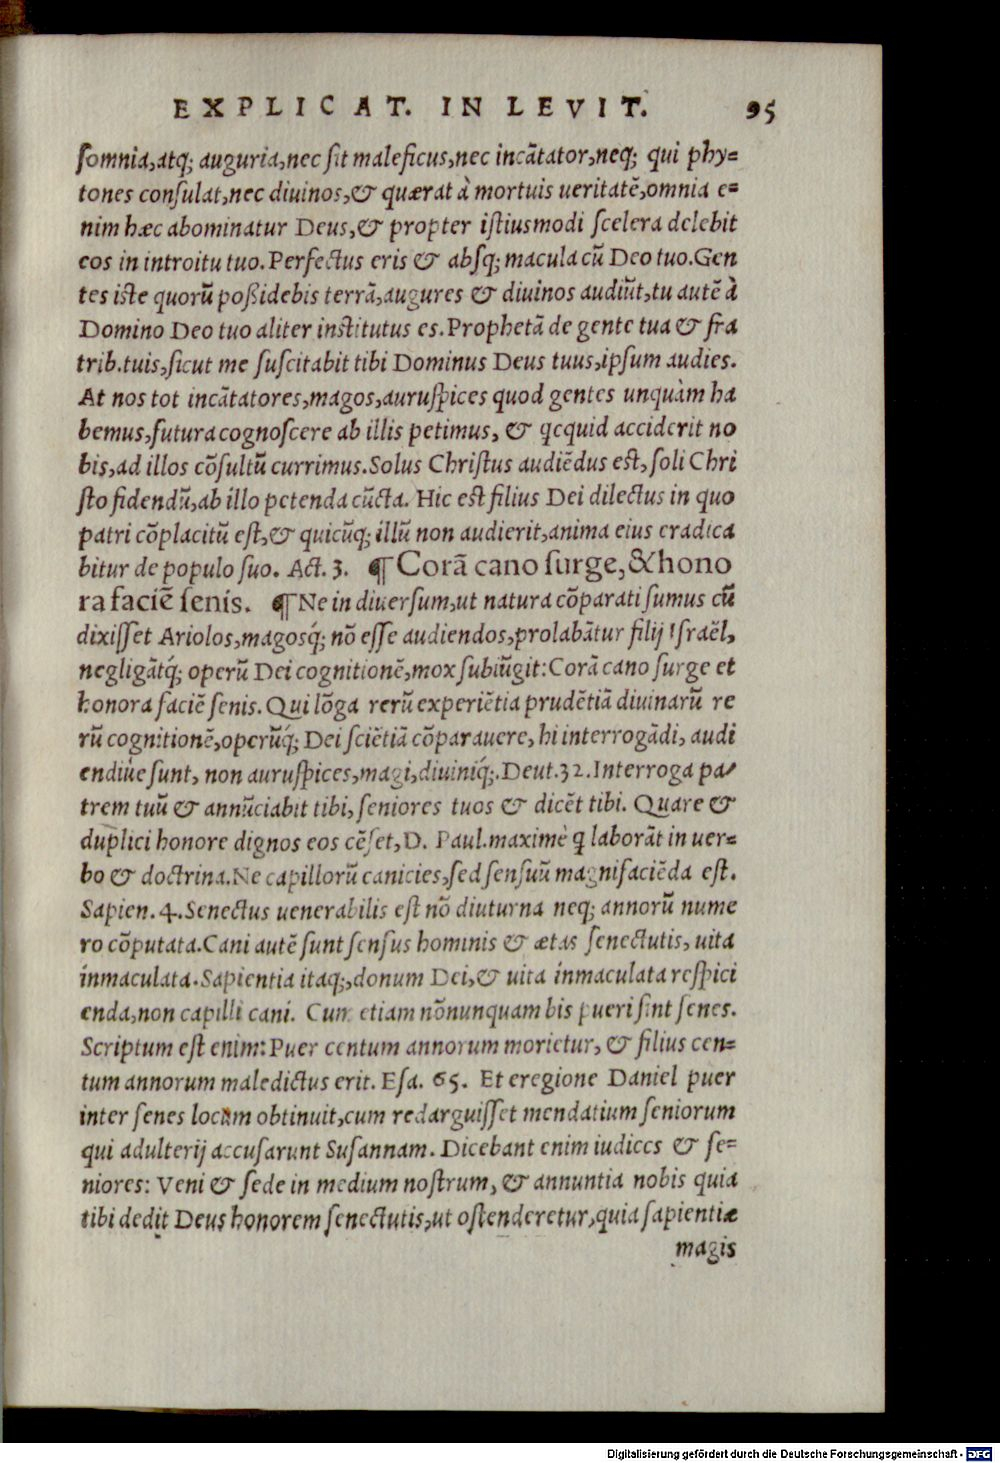 EXPLICAT. IN LEVIT. 95
ſomnia,atq; auguria,nec ſit maleficus,nec incātator,neq; qui phy=
tones conſulat,nec diuinos,& quærat à mortuis ueritatē,omnia e=
nim hæc abominatur Deus,& propter iſtiusmodi ſcelera delebit
eos in introitu tuo.Perfectus eris & abſq; macula cū Deo tuo.Gen
tes iſte quorū poßidebis terrā,augures & diuinos audiūt,tu autē à
Domino Deo tuo aliter inſtitutus es.Prophetā de gente tua & fra
trib.tuis,ſicut me ſuſcitabit tibi Dominus Deus tuus,ipſum audies.
At nos tot incātatores,magos,auruſpices quod gentes unquàm ha
bemus,futura cognoſcere ab illis petimus, & qcquid acciderit no
bis,ad illos cōſultū currimus.Solus Chriſtus audiēdus eſt,ſoli Chri
ſto fidendū,ab illo petenda cūcta. Hic eſt filius Dei dilectus in quo
patri cōplacitū eſt,& quicūq; illū non audierit,anima eius eradica
bitur de populo ſuo. Act. 3. ¶ Corā cano ſurge,&hono
ra faciē ſenis. ¶ Ne in diuerſum,ut natura cōparati ſumus cū
dixiſſet Ariolos,magosq́; nō eſſe audiendos,prolabātur filij Iſraël,
negligātq́; operū Dei cognitionē,mox ſubiūgit:Corā cano ſurge et
honora faciē ſenis. Qui lōga rerū experiētia prudētiā diuinarū re
rū cognitionē,operūq́; Dei ſciētiā cōparauere, hi interrogādi, audi
endiúe ſunt, non auruſpices,magi,diuiniq́;.Deut.32.Interroga pa/
trem tuū & annūciabit tibi, ſeniores tuos & dicēt tibi. Quare &
duplici honore dignos eos cēſet, D. Paul.maximè q laborāt in uer=
bo & doctrina.Ne capillorū canicies,ſed ſenſuū magnifaciēda eſt.
Sapien. 4.Senectus uenerabilis eſt nō diuturna neq; annorū nume
ro cōputata.Cani autē ſunt ſenſus hominis & ætas ſenectutis, uita
inmaculata.Sapientia itaq;,donum Dei,& uita inmaculata reſpici
enda,non capilli cani. Cum etiam nōnunquam bis pueri ſint ſenes.
Scriptum eſt enim:Puer centum annorum morietur, & filius cen=
tum annorum maledictus erit. Eſa. 65. Et eregione Daniel puer
inter ſenes locum obtinuit,cum redarguiſſet mendatium ſeniorum
qui adulterij accuſarunt Suſannam. Dicebant enim iudices & ſe=
niores: Veni & ſede in medium noſtrum, & annuntia nobis quia
tibi dedit Deus honorem ſenectutis,ut oſtenderetur,quia ſapientiæ
magis
Digitalisierung gefördert durch die Deutsche Forschungsgemeinschaft - DFG